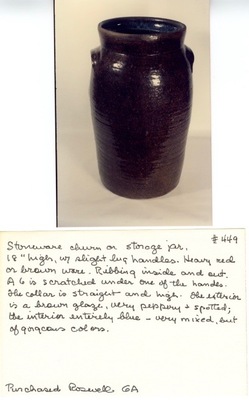 # 449
Stoneware churn or storage jar.
18" high, w/ slight lug handles. Heavy red
or brown ware. Ribbing inside and out.
A 6 is scratched under one of the handles.
The collar is straight and high. The exterior
is a brown glaze, very peppery + spotted;
the interior entirely blue - very mixed, but
of gorgeous colors.
Purchased Roswell GA